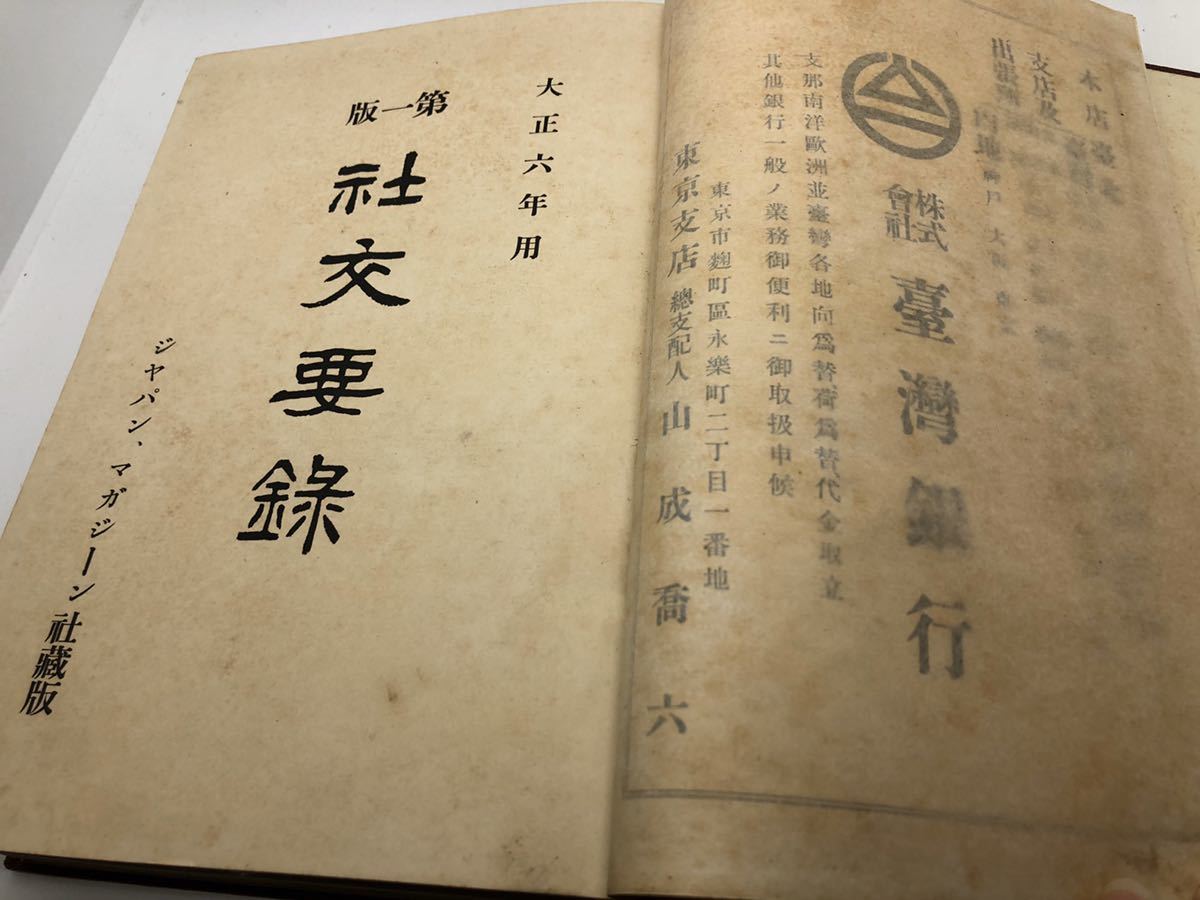 大正六年用
第一版
社交要錄
ジヤパン、マガジーン社藏版
本店
支店及
出張所
內地
神戶
大阪
株式會社
臺灣銀行
支那南洋歐洲並臺灣各地向爲替荷爲替代金取立
其他銀行一般ノ業務御便利ニ御取扱申候
東京市麴町區永樂町二丁目一番地
東京支店
總支配人
山成喬六